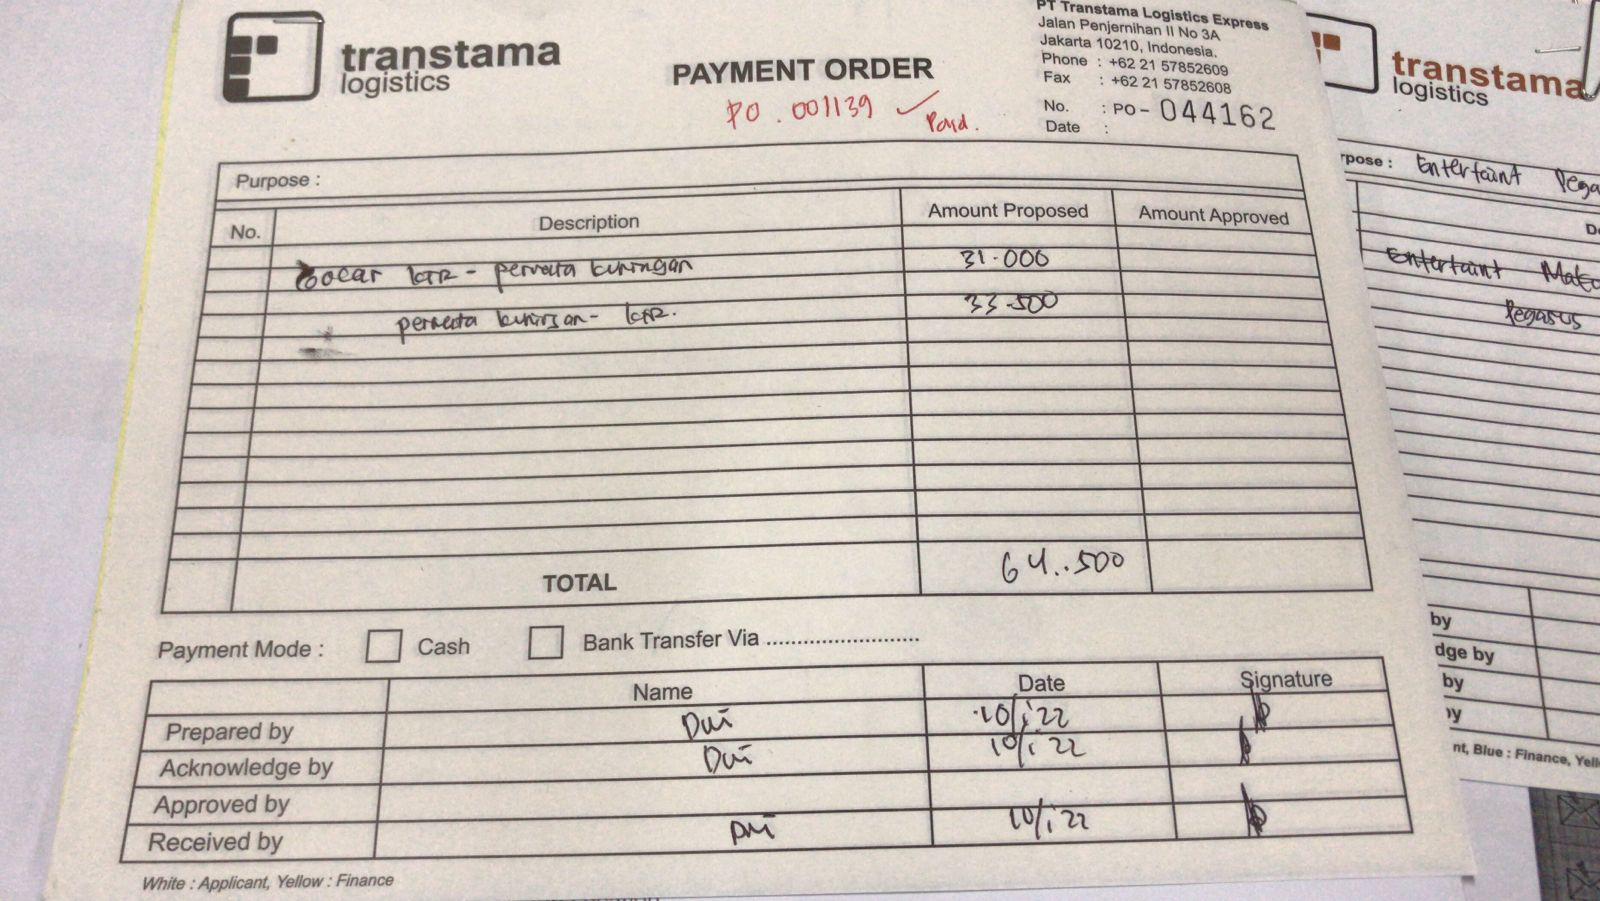 transtama
logistics
PAYMENT ORDER
PO . 001139 ✓ Paid.
PT Transtama Logistics Express
Jalan Penjernihan II No 3A
Jakarta 10210, Indonesia.
Phone : +62 21 57852609
Fax : +62 21 57852608
No. : PO - 044162
Date :
Purpose :
No. Description Amount Proposed Amount Approved
Gocar ktr - permata kuningan 31.000
permata kuningan - ktr. 33.500
TOTAL 64..500
Payment Mode : Cash Bank Transfer Via ........................
Name Date Signature
Prepared by Dwi 10/1 22
Acknowledge by Dwi 10/1 22
Approved by
Received by Dwi 10/1 22
White : Applicant, Yellow : Finance
transtama
logistics
rpose : Entertaint Pega
De
Entertaint
Pegasus
by
dge by
by
by
nt, Blue : Finance, Yell